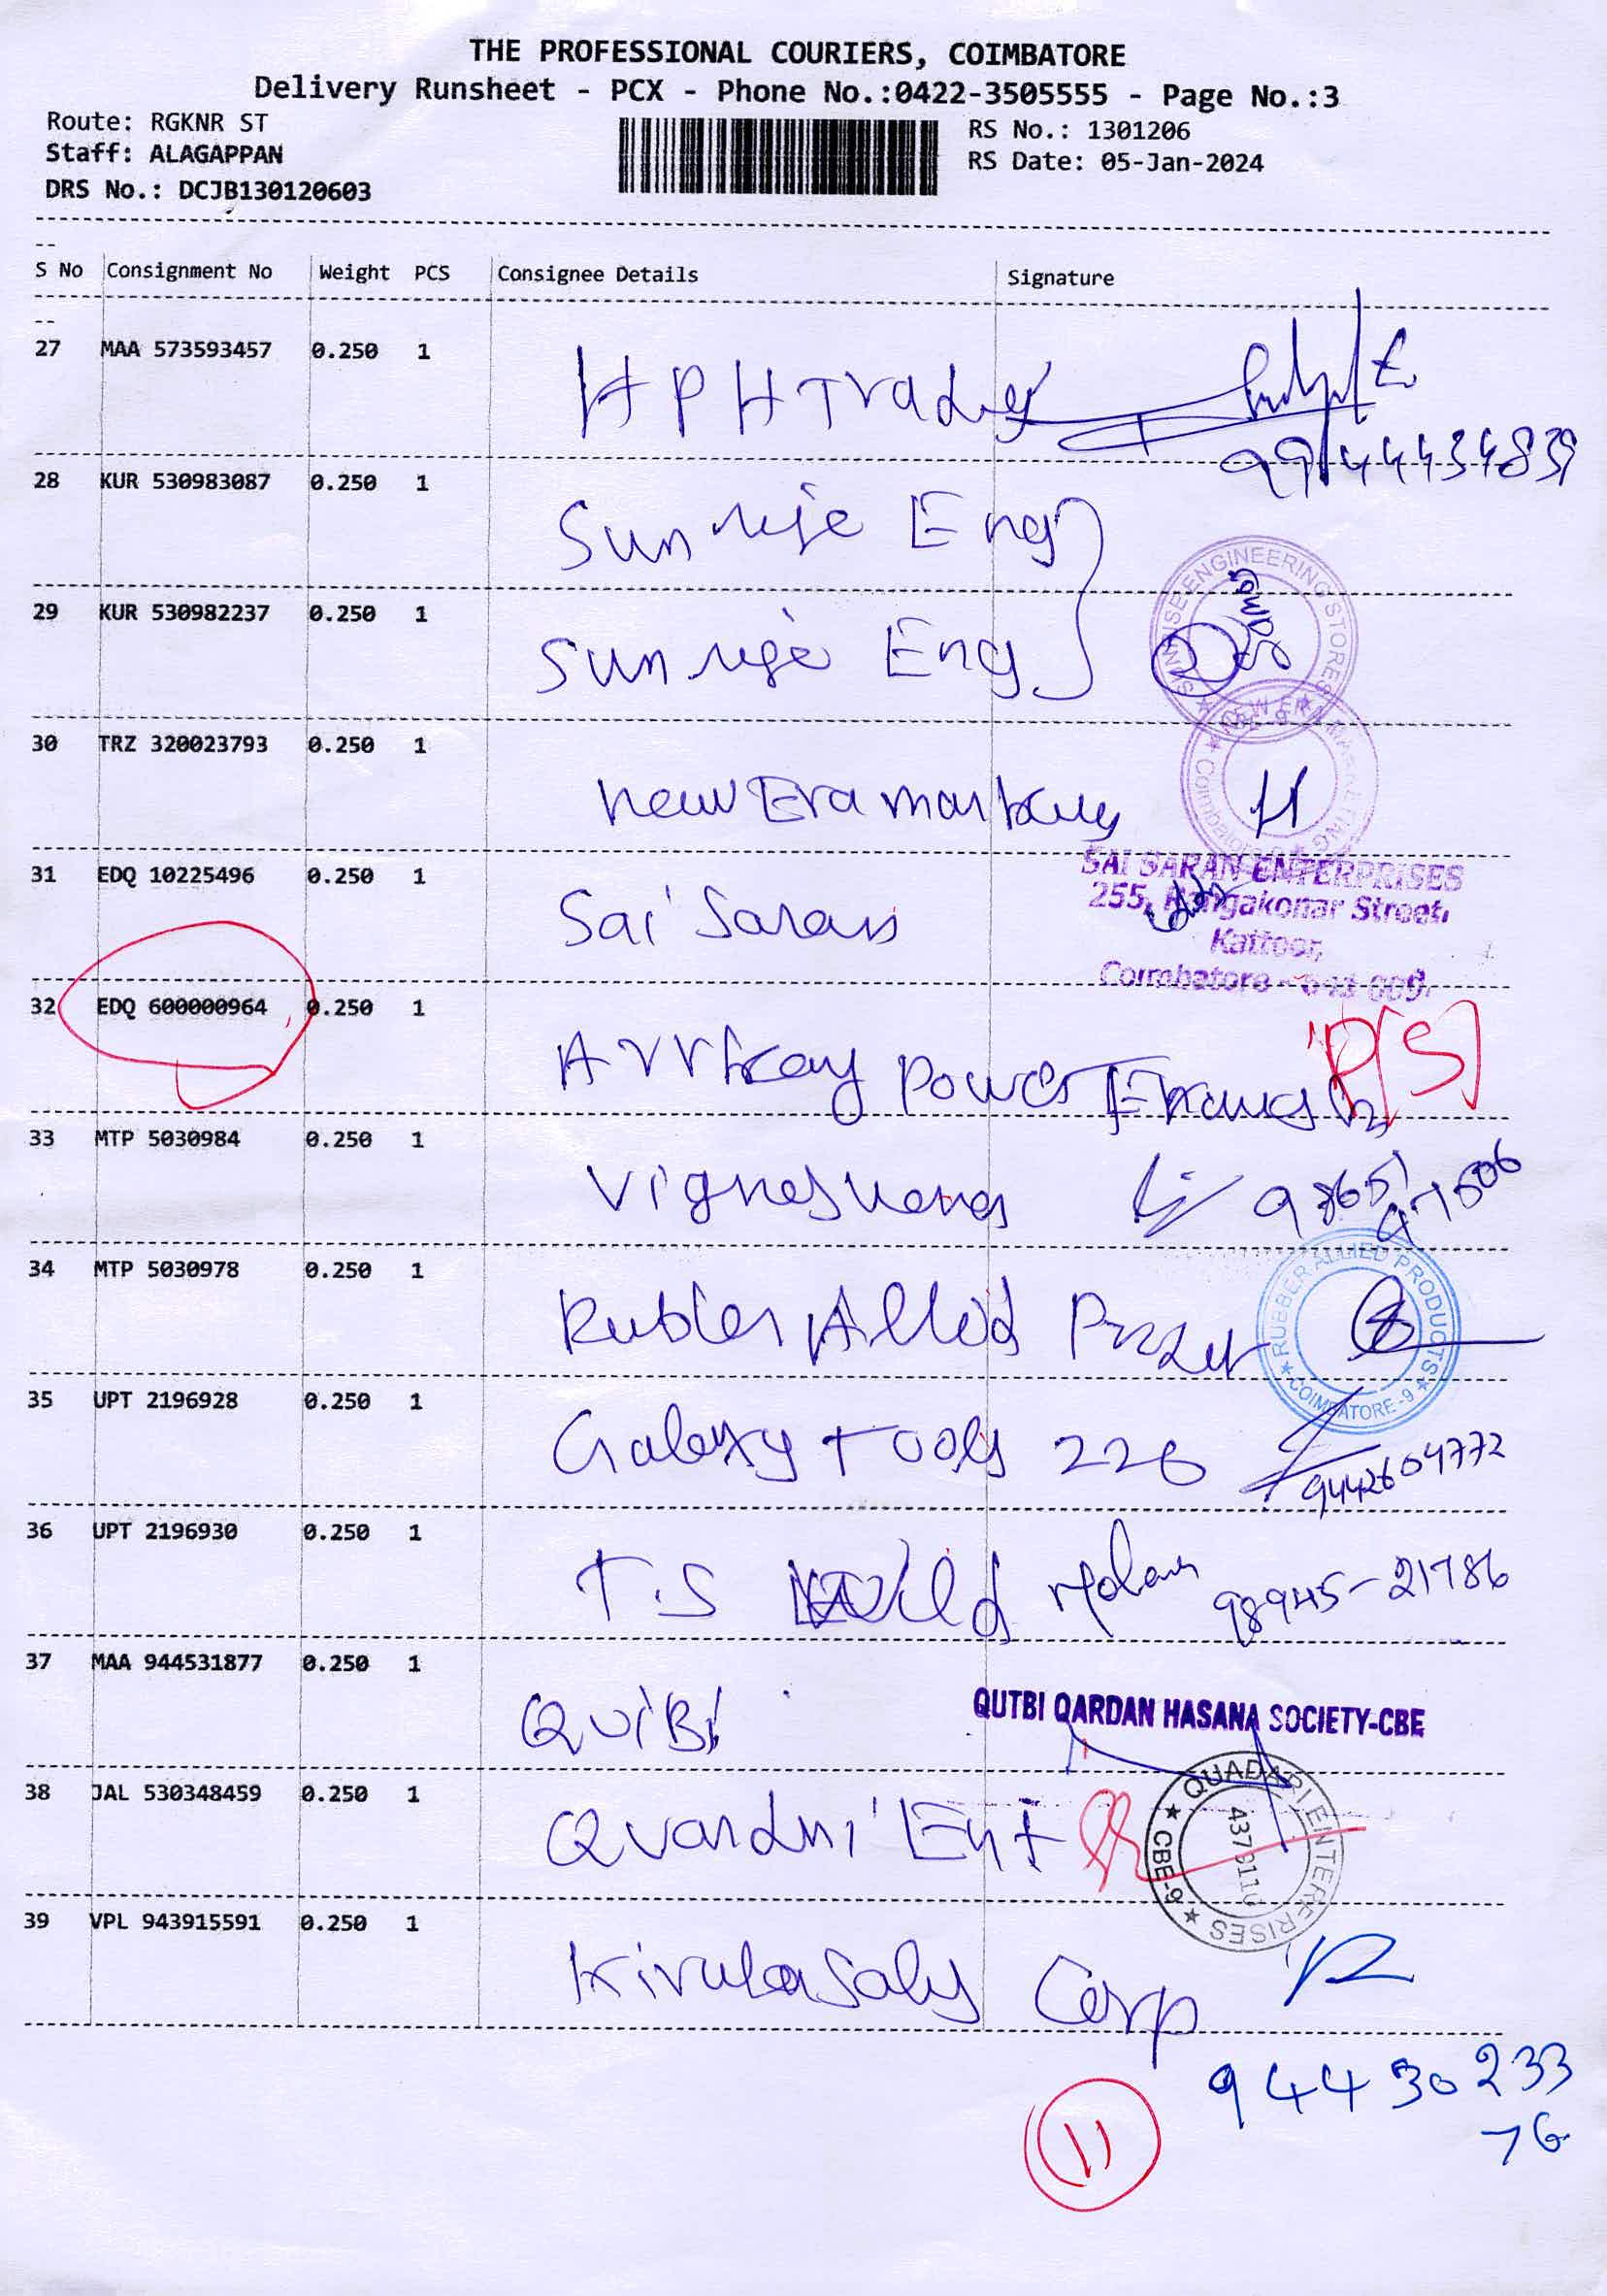 THE PROFESSIONAL COURIERS, COIMBATORE
Delivery Runsheet - PCX - Phone No.:0422-3505555 - Page No.:3
Route: RGKNR ST
RS No.: 1301206
Staff: ALAGAPPAN
RS Date: 05-Jan-2024
DRS No.: DCJB130120603
S No Consignment No Weight PCS Consignee Details Signature
27 MAA 573593457 0.250 1
HPH Trades
9944434839
28 KUR 530983087 0.250 1
Sunrise Eng
29 KUR 530982237 0.250 1
Sunrise Eng
SUNRISE ENGINEERING STORES
30 TRZ 320023793 0.250 1
New Era
31 EDQ 10225496 0.250 1
Sai Saran
SAI SARAN ENTERPRISES
255, Rangakonar Street,
Kattoor,
Coimbatore
32 EDQ 600000964 0.250 1
Power
P[S]
33 MTP 5030984 0.250 1
34 MTP 5030978 0.250 1
Allied
RUBBER ALLIED PRODUCTS
COIMBATORE-9
35 UPT 2196928 0.250 1
Galaxy Tools 226
9442604772
36 UPT 2196930 0.250 1
T.S Mohan 98945-21786
37 MAA 944531877 0.250 1
QUTBI QARDAN HASANA SOCIETY-CBE
38 JAL 530348459 0.250 1
Ent
QUADARI ENTERPRISES
CBE-9
39 VPL 943915591 0.250 1
Corp
94430233
76
11